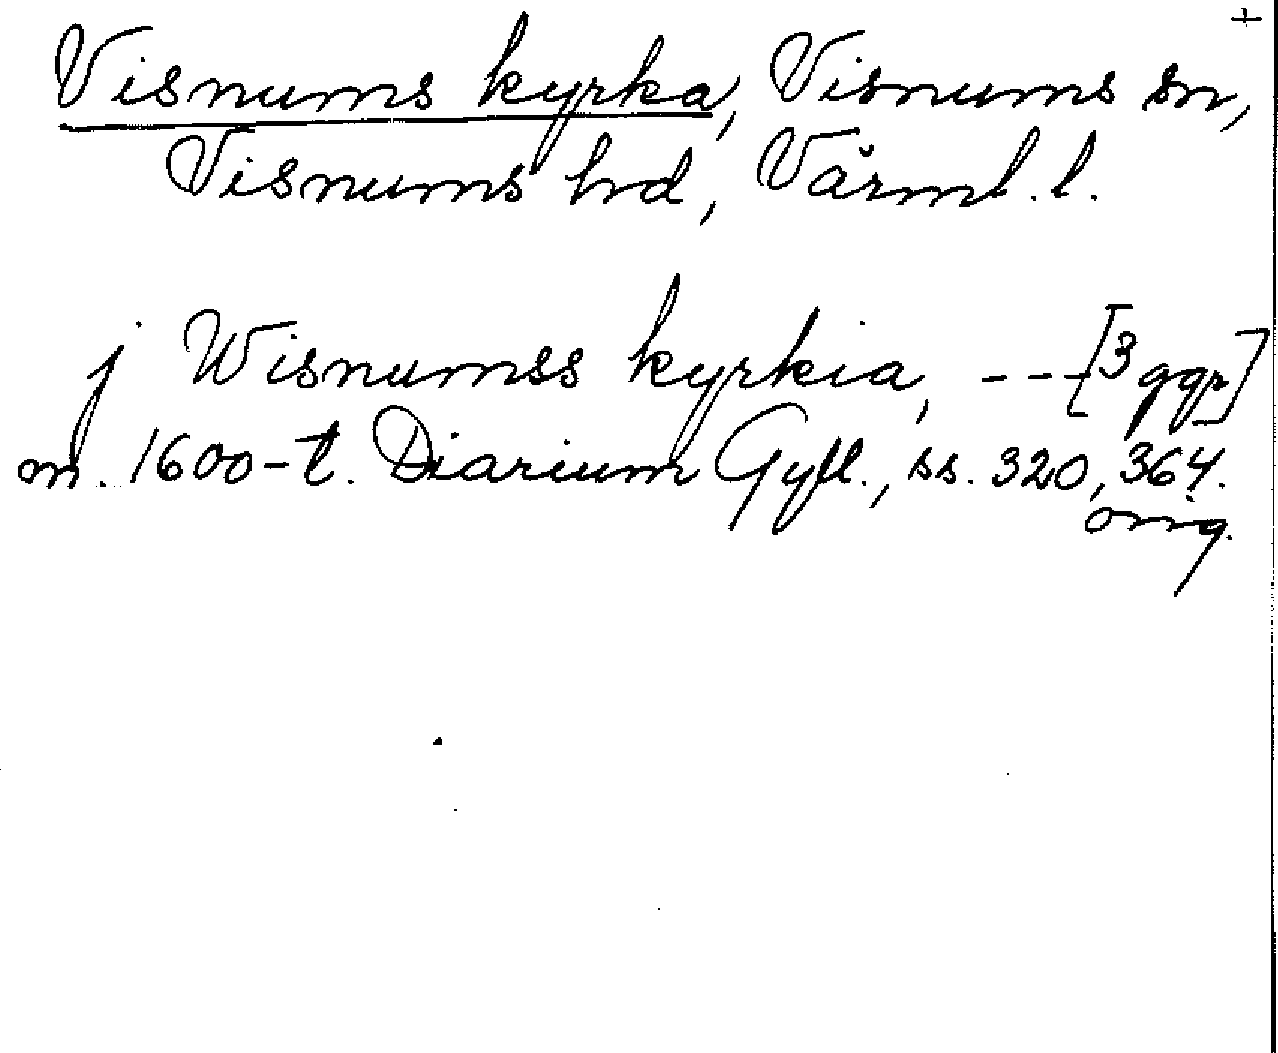 +
Visnums kyrka, Visnums sn,
Visnums hd, Värml. l.
j Wisnumss kyrkia, --- [3 ggr]
m. 1600-t. Diarium Gyll., ss. 320, 364.
orig.